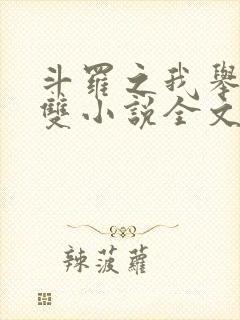 斗羅之我舉
雙小說全文
辣菠蘿